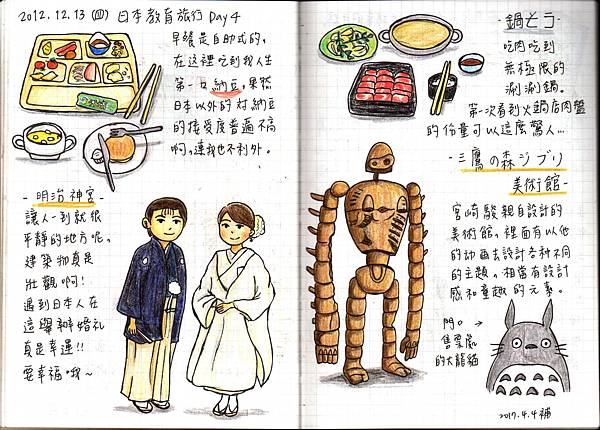 2012.12.13 (四) 日本教育旅行 Day 4
早餐是自助式的,
在這裡吃到我人生
第一口納豆,果然
日本以外的对納豆
的接受度普遍不高
啊,連我也不例外。
- 明治神宮 -
讓人一到就很
平靜的地方呢。
建築物真是
壯觀啊!
遇到日本人在
這舉辦婚禮
真是幸運!!
要幸福哦~
-鍋ぞう-
吃肉吃到
無極限的
涮涮鍋。
第一次看到火鍋店肉盤
的份量可以這麼驚人...
-三鷹の森ジブリ
美術館-
宮崎駿親自設計的
美術館,裡面有以他
的动画去設計各种不同
的主題。相當有設計
感和童趣的元素。
門口 →
售票處
的大龍貓
2017.4.4 補